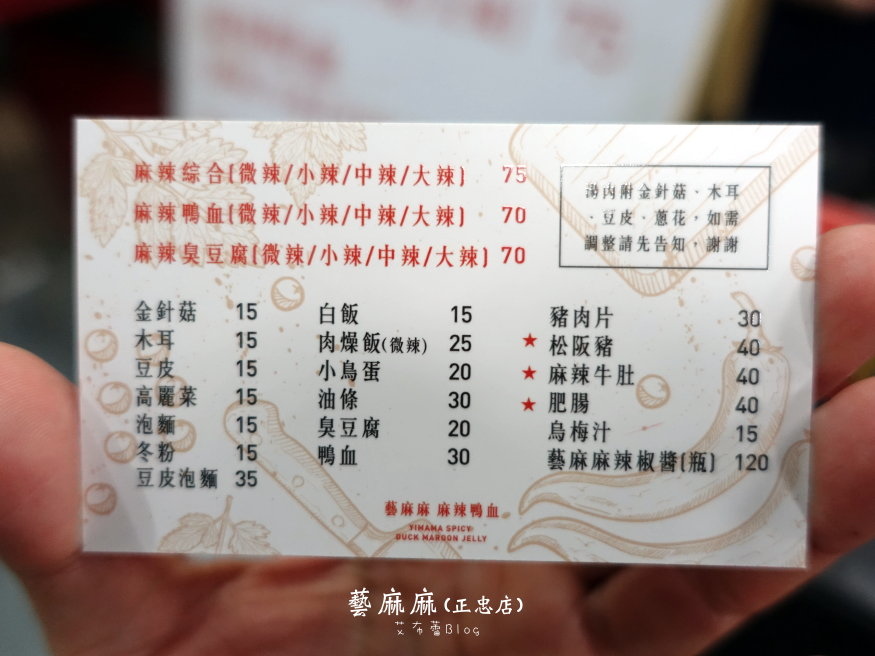 麻辣綜合(微辣/小辣/中辣/大辣) 75
麻辣鴨血(微辣/小辣/中辣/大辣) 70
麻辣臭豆腐(微辣/小辣/中辣/大辣) 70
湯內附金針菇、木耳
、豆皮、蔥花，如需
調整請先告知，謝謝
金針菇 15
木耳 15
豆皮 15
高麗菜 15
泡麵 15
冬粉 15
豆皮泡麵 35
白飯 15
肉燥飯(微辣) 25
小鳥蛋 20
油條 30
臭豆腐 20
鴨血 30
豬肉片 30
★ 松阪豬 40
★ 麻辣牛肚 40
★ 肥腸 40
烏梅汁 15
藝麻麻辣椒醬(瓶) 120
藝麻麻 麻辣鴨血
YIMAMA SPICY
DUCK MAROON JELLY
藝麻麻(正忠店)
艾布蕾Blog